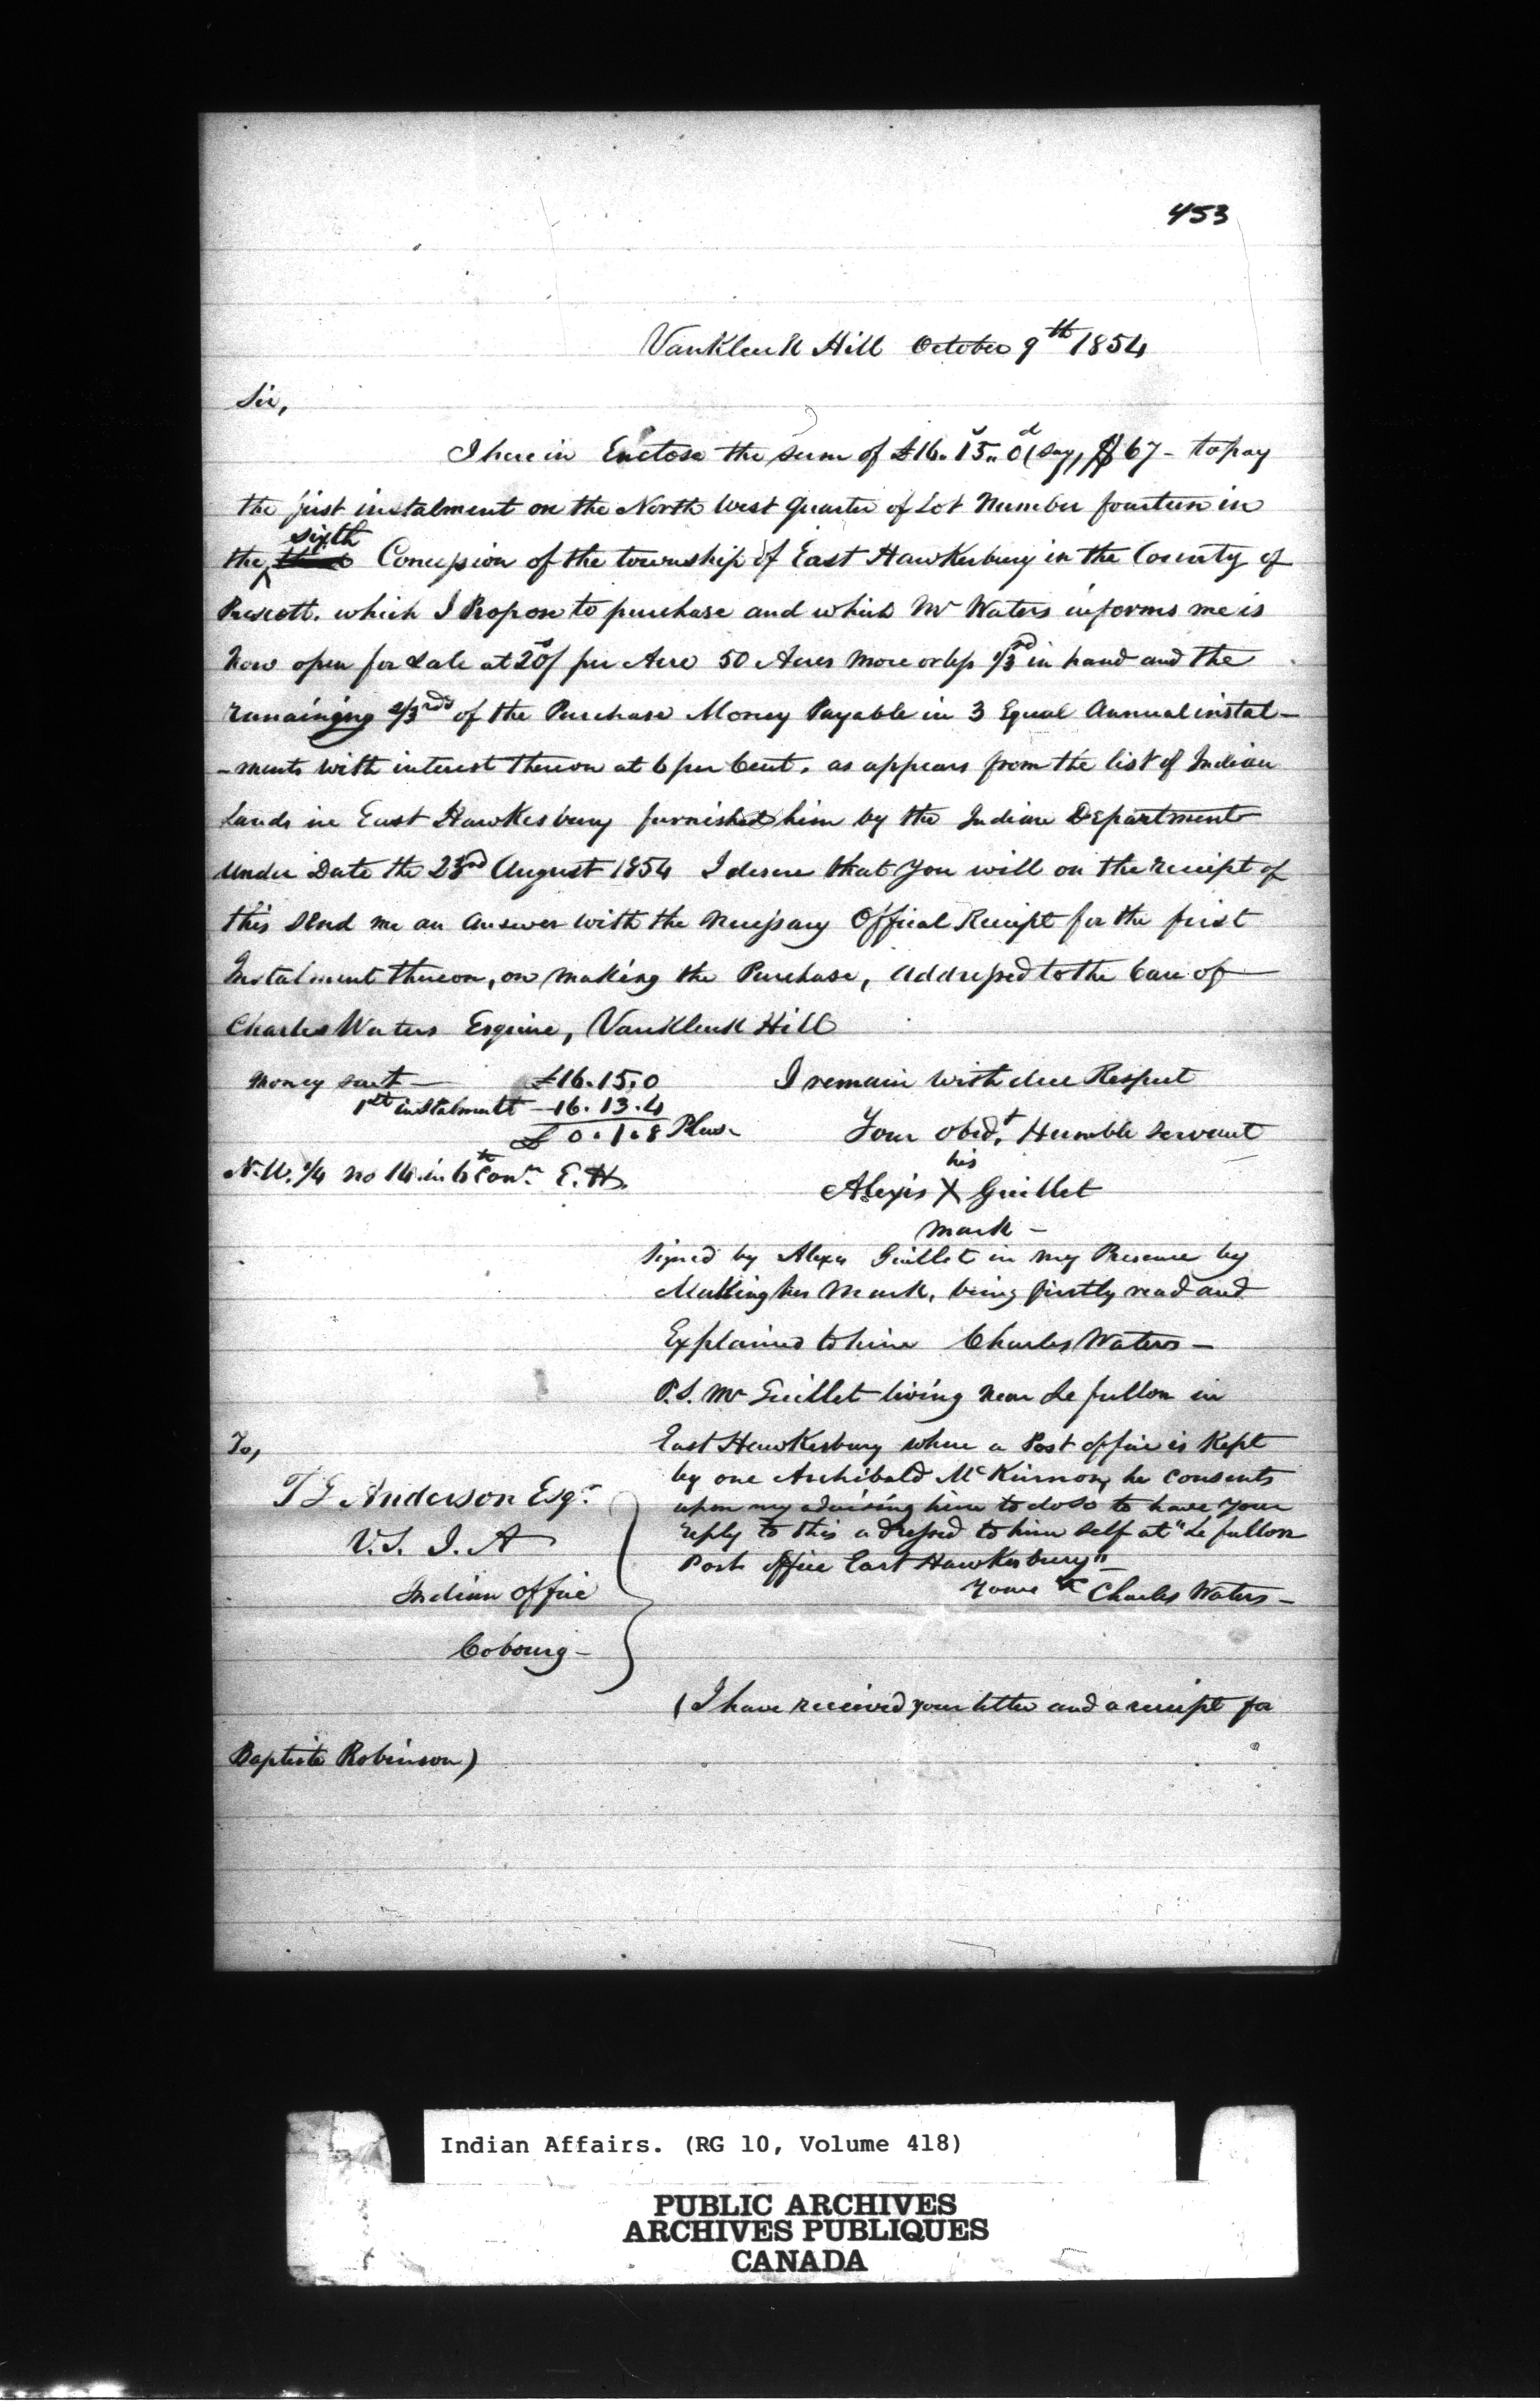 453
VanKleek Hill October 9th 1854
Sir,
I herein Enclose the sum of £16. 15s.. 0d (say, $67 - to pay
the first instalment on the North West Quarter of Lot Number fourteen in
sixth
the Concession of the township of East HawKesbury in the County of
Prescott. which I Propose to purchase and which Mr Waters informs me is
Now open for Sale at 20s/ per Acre 50 Acres More or less 1/3rd in hand and the
remainging 2/3rds of the Purchase Money Payable in 3 Equal Annual instal-
-ments with interest thereon at 6 per Cent. as appears from the list of Indian
Lands in East HawKesbury furnished him by the Indian Department
Under Date the 23rd August 1854 I desire that You will on the receipt of
this Send me an Answer with the Necessary Offical Receipt for the first
Instalment thereon, on making the Purchase, Addressed to the Care of
Charles Waters Esquire, VanKleek Hill
Money sent - £16.15.0
1st instalment - 16.13.4
£ 0.1.8 Plus-
N.W. 1/4 no 14 in 6th Con.n E.H.
I remain With due Respect
Your obed.t Humble Servant
his
Alexis X Guillet
mark -
Signed by Alexis Guillet in my Presence by
Making his Mark, being firstly read and
Explained to him Charles Waters -
P.S. Mr Guillet living Near Le fullon in
East HawKesbury where a Post office is Kept
by one Archibald McKinnon, he consents
upon my advising him to do so to have Your
reply to this adressed to him self at "Le fullon
Post Office East HawKesbury" -
Yours &c Charles Waters -
To,
T G Anderson Esqr.
V.S. I. A
Indian Office
Cobourg -
(I have received your letter and a receipt for
Baptiste Robinson)
Indian Affairs. (RG 10, Volume 418)
PUBLIC ARCHIVES
ARCHIVES PUBLIQUES
CANADA